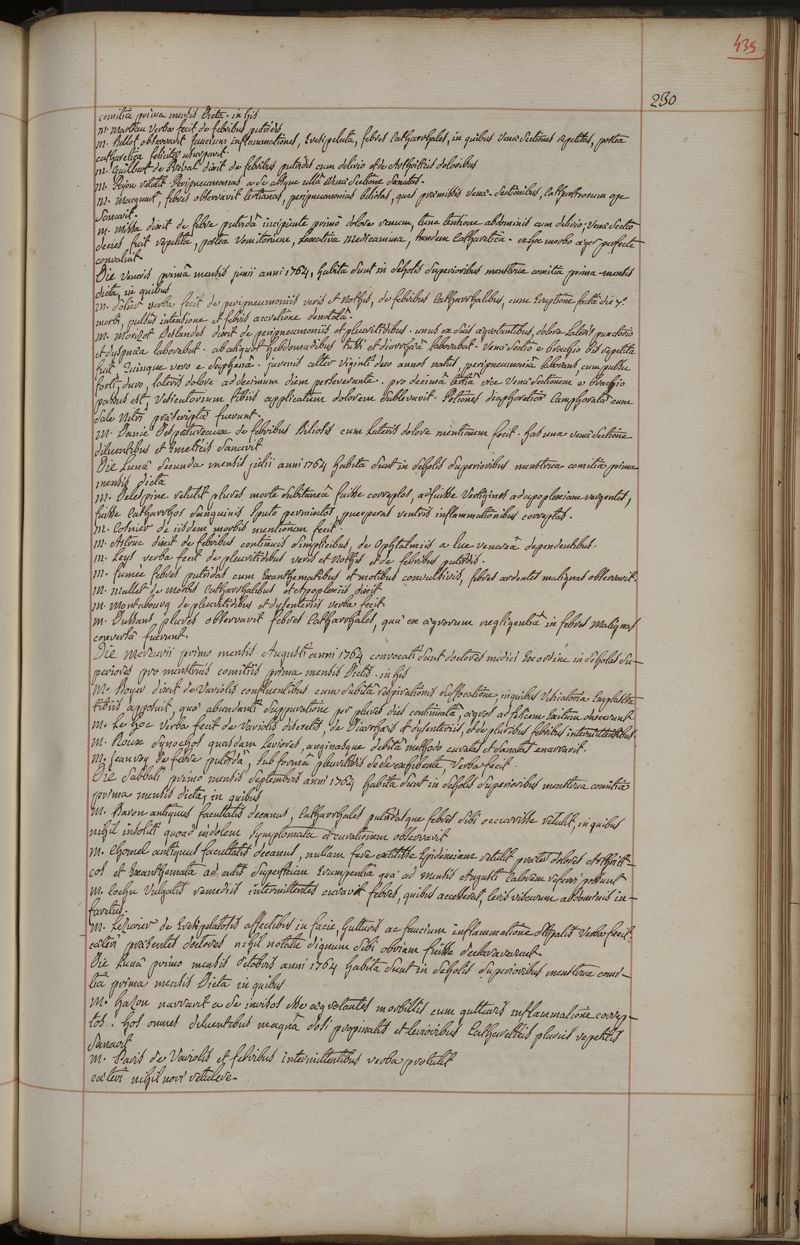 435
230
comitia prima mensis dicta. in his
M. Marteau verba fecit de febribus putridis
M. Bellot observavit faucium inflammationes, Erisipelata, febres Catharrhales, in quibus venæ sectiones repetitas, postea
cathartica feliciter usurpavit.
M. Guilbert de Préval dixit de febribus putridis cum delirio et de Arthritis doloribus
M. Bijon retulit Peripneumonias a se absque ulla venæ sectione sanatas.
M. Macquart, febres observavit tertianas, peripneumonias biliosas, quas præmissis venæ-sectionibus, Catharticorum ope
sanavit.
M. Missa dixit de febre putridâ incipiente primò dolore renum, tunc tentione abdominis cum delirio; venæ sectio
decies fuit repetita, postea vomitorium, laxativa medicamina, tandem Cathartica. ex hoc morbo æger perfecte
convaluit.
Die veneris primâ mensis junii anni 1764, habita sunt in scholis superioribus menstrua comitia prima mensis
dicta, in quibus
M. Solier verba fecit de peripneumoniis veris et nothis, de febribus Catharrhalibus, cum Eruptione factâ die 7.
morbi, pulsus intensione et febris accretione denotatâ.
M. Morizot Deslandes dixit de peripneumoniis et pleuritidibus. unus ex suis ægrotantibus, dolore lateris punctorio
et dyspnæa laborabat. ab aliquot hebdomadibus tussi et diarrhæâ laborabat. venæ sectio e brachio bis repetita
fuit quinque vero e saphenâ. juvenis alter viginti duo annos natus, peripneumoniâ laborans, cum pulsu
forti, duro, lateris dolore ad decimum diem perseverante. pro decimâ tertiâ vice venæ sectionem e brachio
passus est, vesicatorium tibiis applicatum dolorem sublevavit. Potiones diaphoreticæ Camphoratæ cum
sale nitri præscriptæ fuerunt.
M. Danié Despatureaux de febribus biliosis cum lateris dolore mentionem fecit. has una venæ sectione
diluentibus et Emeticis sanavit
Die Lunæ secunda mensis julii anni 1764 habita sunt in scholis superioribus menstrua comitia prima
mensis dicta
M. Delespine retulit plures morte subitaneâ fuisse correptos, adfuisse vertigines ad apoplexiam vergentes,
fuisse Catharrhos sanguinis sputo permixtos, puerperas ventris inflammationibus correptas.
M. Cosnier de iisdem morbis mentionem fecit.
M. Astruc dixit de febribus continuis simplicibus, de Ophtalmiis a lue venereâ dependentibus.
M. Leys verba fecit de pleuritidibus veris et nothis et de febribus putridis.
M. fumée febres putridas cum Exanthematibus et motibus convulsivis, febres ardentes malignas observavit.
M. Mallet de morbis Catharrhalibus et Apoplexiis dixit
M. Montabourg de pleuritidibus et dysenteriis verba fecit.
M. Dussans plures observavit febres Catharrhales, quæ ex ægrorum negligentiâ in febres malignas
conversæ fuerunt.
Die Mercurii primo mensis Augusti anni 1764 convocati sunt doctores medici Ex ordine in scholas su-
periores pro menstruis comitiis prima mensis dictis. in his
M. Boyer dixit de variolis confluentibus cum subitâ respirationis suffocatione, in quibus vesicatoria Emplastra
tibiis apposuit, quæ abundanti suppuratione per plures dies continuatâ, ægros ad felicem exitum duxerunt
M. Le hoc verba fecit de variolis discretis, de Diarrhæis et dysenteriis, et de pluribus febribus intermittentibus.
M. Roux synochos quasdam leviores, anginasque debitâ methodo curatas et sanatas enarravit.
M. Jeanroy de febre putridâ, sub formâ pleuritidis sese exhibente, verba fecit.
Die Sabbati primo mensis septembris anni 1764 habita sunt in scholis superioribus menstrua comitia
prima mensis dicta, in quibus
M. Baron antiquus facultatis decanus, Catharrhales putridasque febres sibi occurrisse retulit, in quibus
nihil insoliti quoad indolem symptomata et curationem observavit
M. Chomel antiquus facultatis decanus, nullam fere extitisse Epidemiam retulit præter dolores Arthriti-
cos et Exanthemata ad cutis superficiem Erumpentia quæ ad mensis Augusti calorem referri possunt
M. Cochu vulgatis remediis intermittentes curavit febres, quibus accedebat, levis viscerum abdominis in-
farctus.
M. Lezurier de Erisipelatosis affectibus in facie, gutturis ac faucium inflammatione stipatis verba fecit.
cæteri præsentes doctores nihil notatu dignum sibi obviam fuisse declaraverunt.
Die Lunæ primo mensis octobris anni 1764 habita sunt in scholis superioribus menstrua comi-
tia prima mensis dicta in quibus
M. Hazon narravit a se invisos esse ægrotantes morbillis cum gutturis inflammatione correp-
tos. hos omnes diluentibus magnâ dosi propinatis et levioribus Catharticis pluries repetitis
sanavit
M. Paris de variolis et febribus intermittentibus verba protulit
cæteri nihil novi retulere.